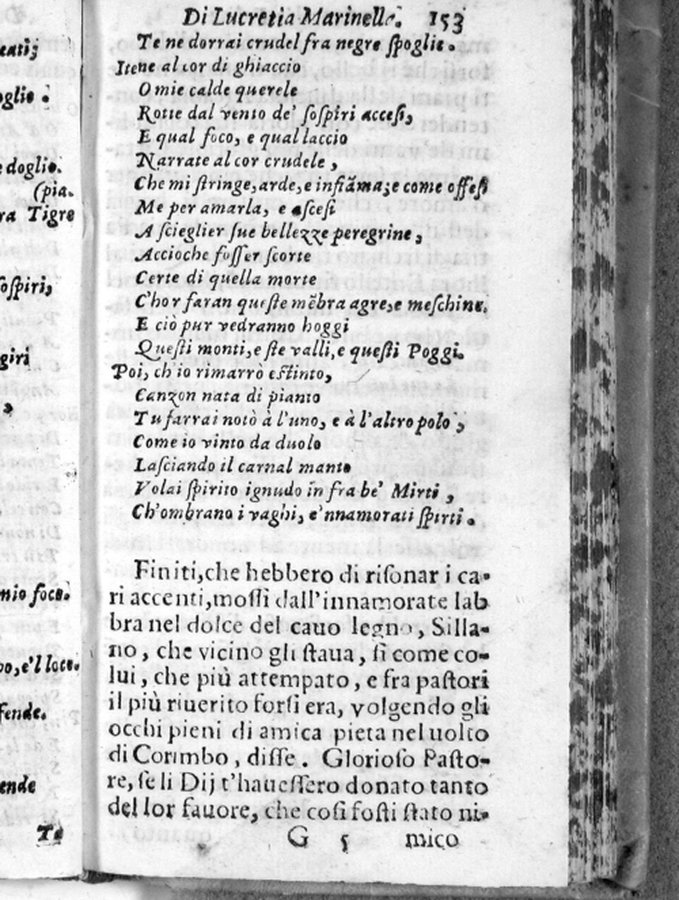 Di Lucretia Marinelle. 153
Te ne dorrai crudel fra negre ſpoglie.
Itene al cor di ghiaccio
O mie calde querele
Rotte dal vento de' ſoſpiri acceſi,
E qual foco, e qual laccio
Narrate al cor crudele,
Che mi ſtringe, arde, e infiāma; e come offeſi
Me per amarla, e aſceſi
A ſcieglier ſue bellezze peregrine,
Accioche foſſer ſcorte
Certe di quella morte
C'hor faran queſte mēbra agre, e meſchine.
E ciò pur vedranno hoggi
Queſti monti, e ſte valli, e queſti Poggi.
Poi, ch'io rimarrò eſtinto,
Canzon nata di pianto
Tu farrai notò à l'uno, e à l'altro polo,
Come io vinto da duolo
Laſciando il carnal manto
Volai ſpirito ignudo in fra be' Mirti,
Ch'ombrano i vaghi, e'nnamorati ſpirti.
Finiti, che hebbero di riſonar i ca-
ri accenti, moſſi dall'innamorate lab
bra nel dolce del cauo legno, Silla-
no, che vicino gli ſtaua, ſi come co-
lui, che più attempato, e fra paſtori
il più riuerito forſi era, volgendo gli
occhi pieni di amica pieta nel uolto
di Corimbo, diſſe. Glorioſo Paſto-
re, ſe li Dij t'haueſſero donato tanto
del lor fauore, che coſi foſti ſtato ni-
G 5 mico
oglie.
e doglie.
(pia.
ra Tigre
oſpiri,
giri
,
mio foco.
po, e'l loco.
fende.
ende
Te